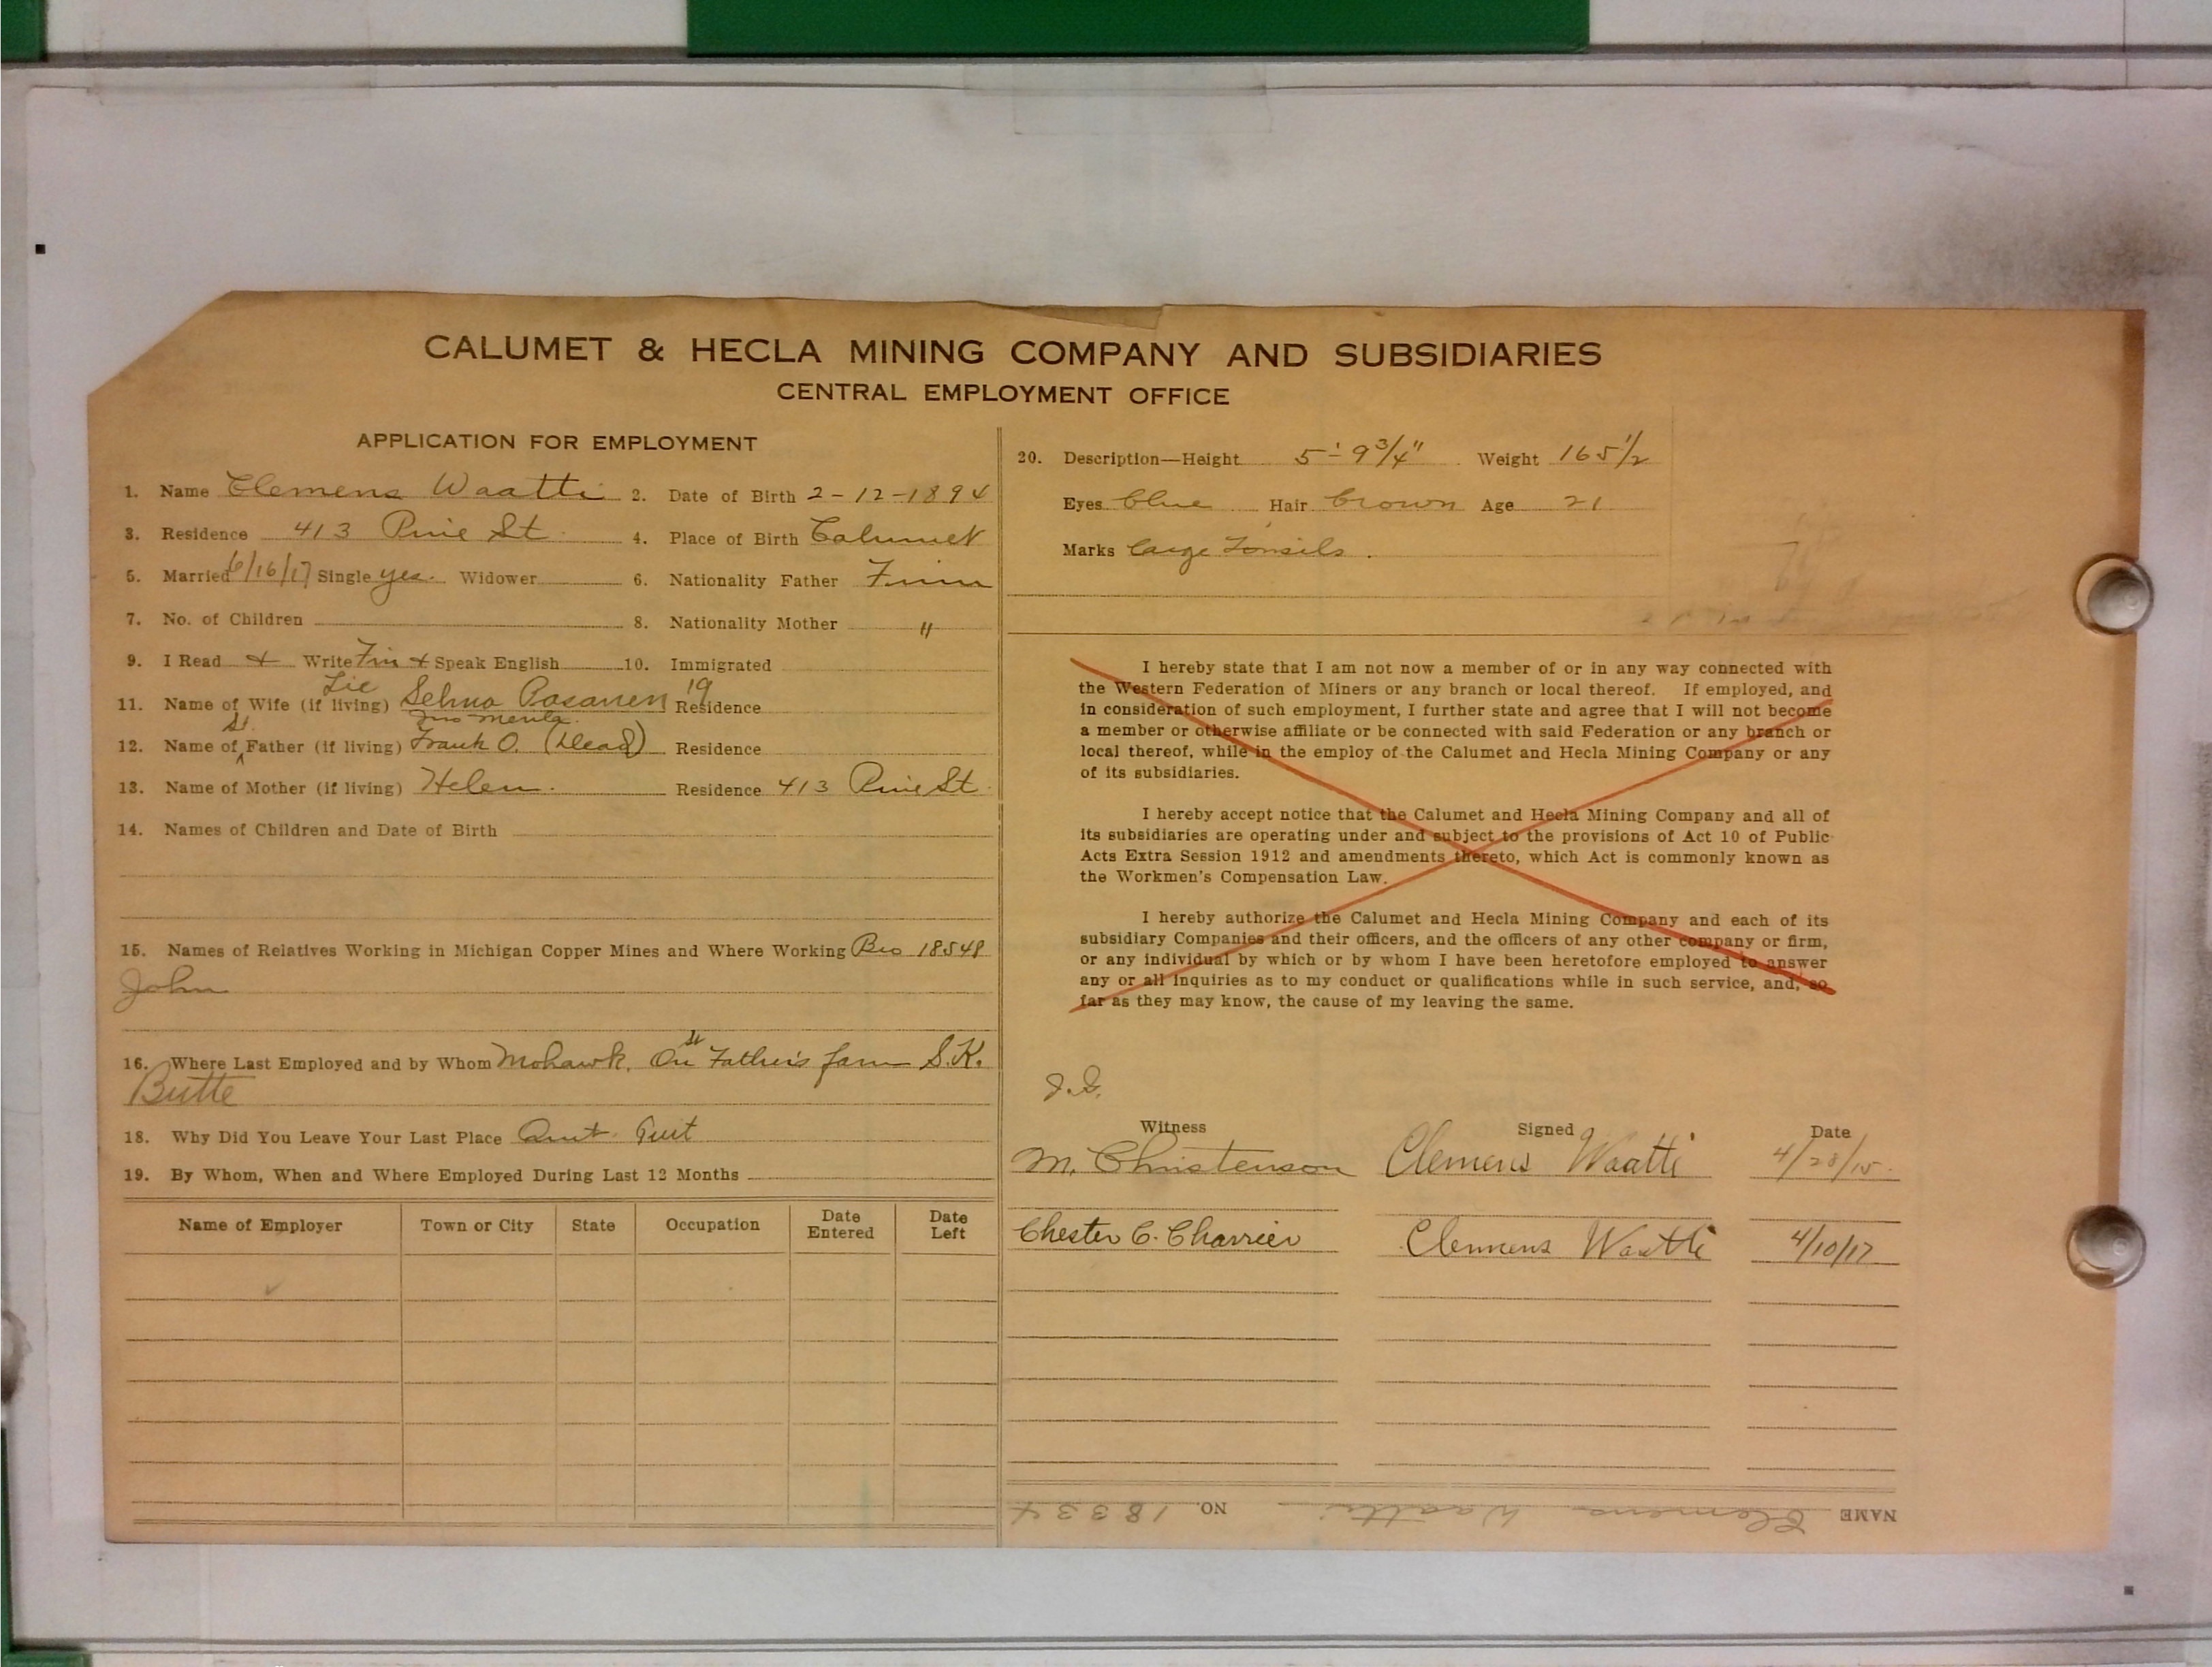 CALUMET & HECLA MINING COMPANY AND SUBSIDIARIES
CENTRAL EMPLOYMENT OFFICE
APPLICATION FOR EMPLOYMENT
1. Name Clemens Waatti 2. Date of Birth 2-12-1894
3. Residence 413 Pine St. 4. Place of Birth Calumet
5. Married 6/16/17 Single yes. Widower 6. Nationality Father Finn
7. No. of Children 8. Nationality Mother "
9. I Read + Write Fin + Speak English 10. Immigrated
Lic 19
11. Name of Wife (if living) Selma Pasanen Residence
St.
12. Name of Father (if living) Frank O. (Dead) Residence
13. Name of Mother (if living) Helen. Residence 413 Pine St.
14. Names of Children and Date of Birth
15. Names of Relatives Working in Michigan Copper Mines and Where Working Bro 18548
John
St
16. Where Last Employed and by Whom Mohawk. On Father's farm S.K.
Butte
18. Why Did You Leave Your Last Place Quit Quit
19. By Whom, When and Where Employed During Last 12 Months
Name of Employer Town or City State Occupation Date Entered Date Left
20. Description—Height 5'-9 3/4" Weight 165 1/2
Eyes blue Hair brown Age 21
Marks large Tonsils.
I hereby state that I am not now a member of or in any way connected with
the Western Federation of Miners or any branch or local thereof. If employed, and
in consideration of such employment, I further state and agree that I will not become
a member or otherwise affiliate or be connected with said Federation or any branch or
local thereof, while in the employ of the Calumet and Hecla Mining Company or any
of its subsidiaries.
I hereby accept notice that the Calumet and Hecla Mining Company and all of
its subsidiaries are operating under and subject to the provisions of Act 10 of Public
Acts Extra Session 1912 and amendments thereto, which Act is commonly known as
the Workmen's Compensation Law.
I hereby authorize the Calumet and Hecla Mining Company and each of its
subsidiary Companies and their officers, and the officers of any other company or firm,
or any individual by which or by whom I have been heretofore employed to answer
any or all inquiries as to my conduct or qualifications while in such service, and, so
far as they may know, the cause of my leaving the same.
Witness Signed Date
M. Christenson Clemens Waatti 4/28/15.
Chester C. Charrier Clemens Waatti 4/10/17
NAME Clemens Waatti NO. 18334